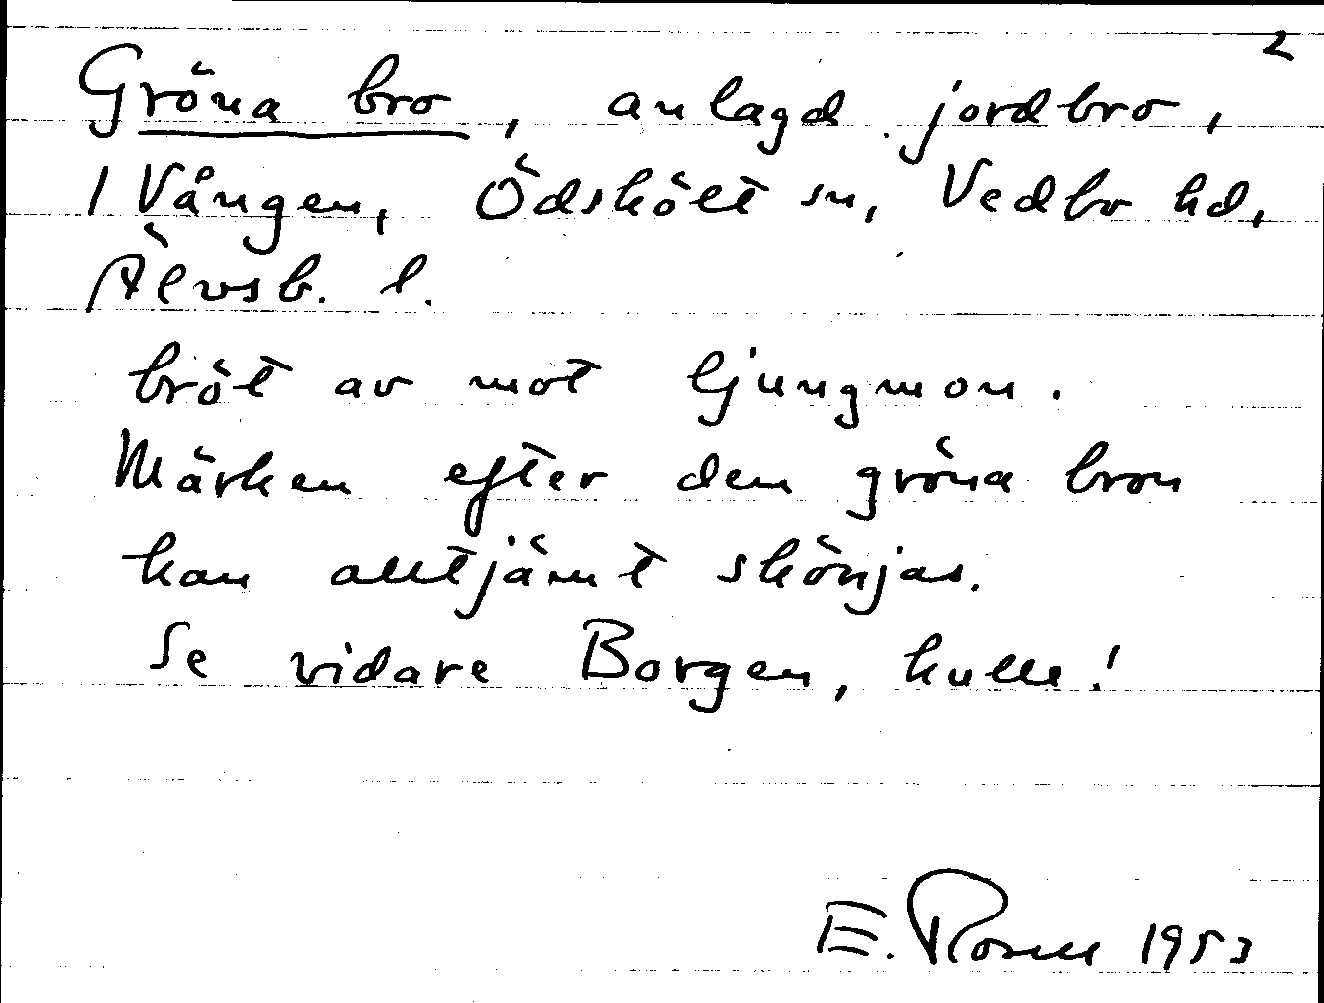 2
Gröna bro, anlagd jordbro,
1 Vången, Ödskölt sn, Vedbo hd,
Älvsb. l.
bröt av mot ljungmon.
Märken efter den gröna bron
kan alltjämt skönjas.
Se vidare Borgen, kulle!
E. Rosell 1953